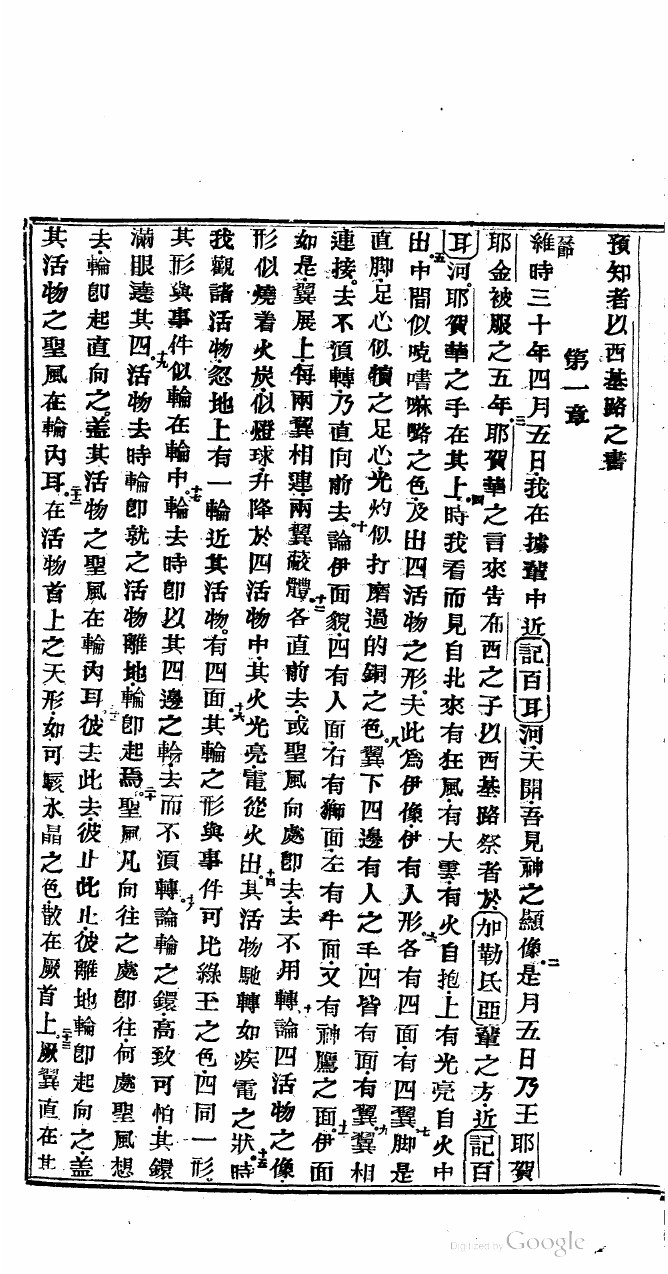 預知者以西基路之書
第一章
維時三十年四月五日我在擄輩中近記百耳河天開吾見神之顯像二是月五日乃王耶賀
耶金被服之五年三耶賀華之言來告布西之子以西基路祭者於加勒氐亞輩之方近記百
耳河耶賀華之手在其上四時我看而見自北來有狂風有大雲有火自抱上有光亮自火中
出五中間似 嗎咯之色及出四活物之形夫此為伊像伊有人形六各有四面有四翼七脚是
直脚足心似犢之足心光灼似打磨過的銅之色八翼下四邊有人之手四皆有面有翼九翼相
連接去不須轉乃直向前去十論伊面貌四有人面右有獅面左有牛面又有神鷹之面十一伊面
如是翼展上每兩翼相連兩翼蔽體十二各直前去或聖風向處即去去不用轉十三論四活物之像
形似燒着火炭似燈球升降於四活物中其火光亮電從火出十四其活物馳轉如疾電之狀十五時
我觀諸活物忽地上有一輪近其活物有四面十六其輪之形與事件可比綠玉之色四同一形
其形與事件似輪在輪中十七輪去時即以其四邊之輪去而不須轉十八論輪之鐶高致可怕其鐶
滿眼遶其四十九活物去時輪即就之活物離地輪即起焉二十聖風凡向往之處即往何處聖風想
去輪即起直向之蓋其活物之聖風在輪內耳彼去此去彼止此止彼離地輪即起向之蓋
其活物之聖風在輪內耳二十二在活物首上之天形如可駭水晶之色散在厥首上二十三厥翼直在其
Digitized by Google